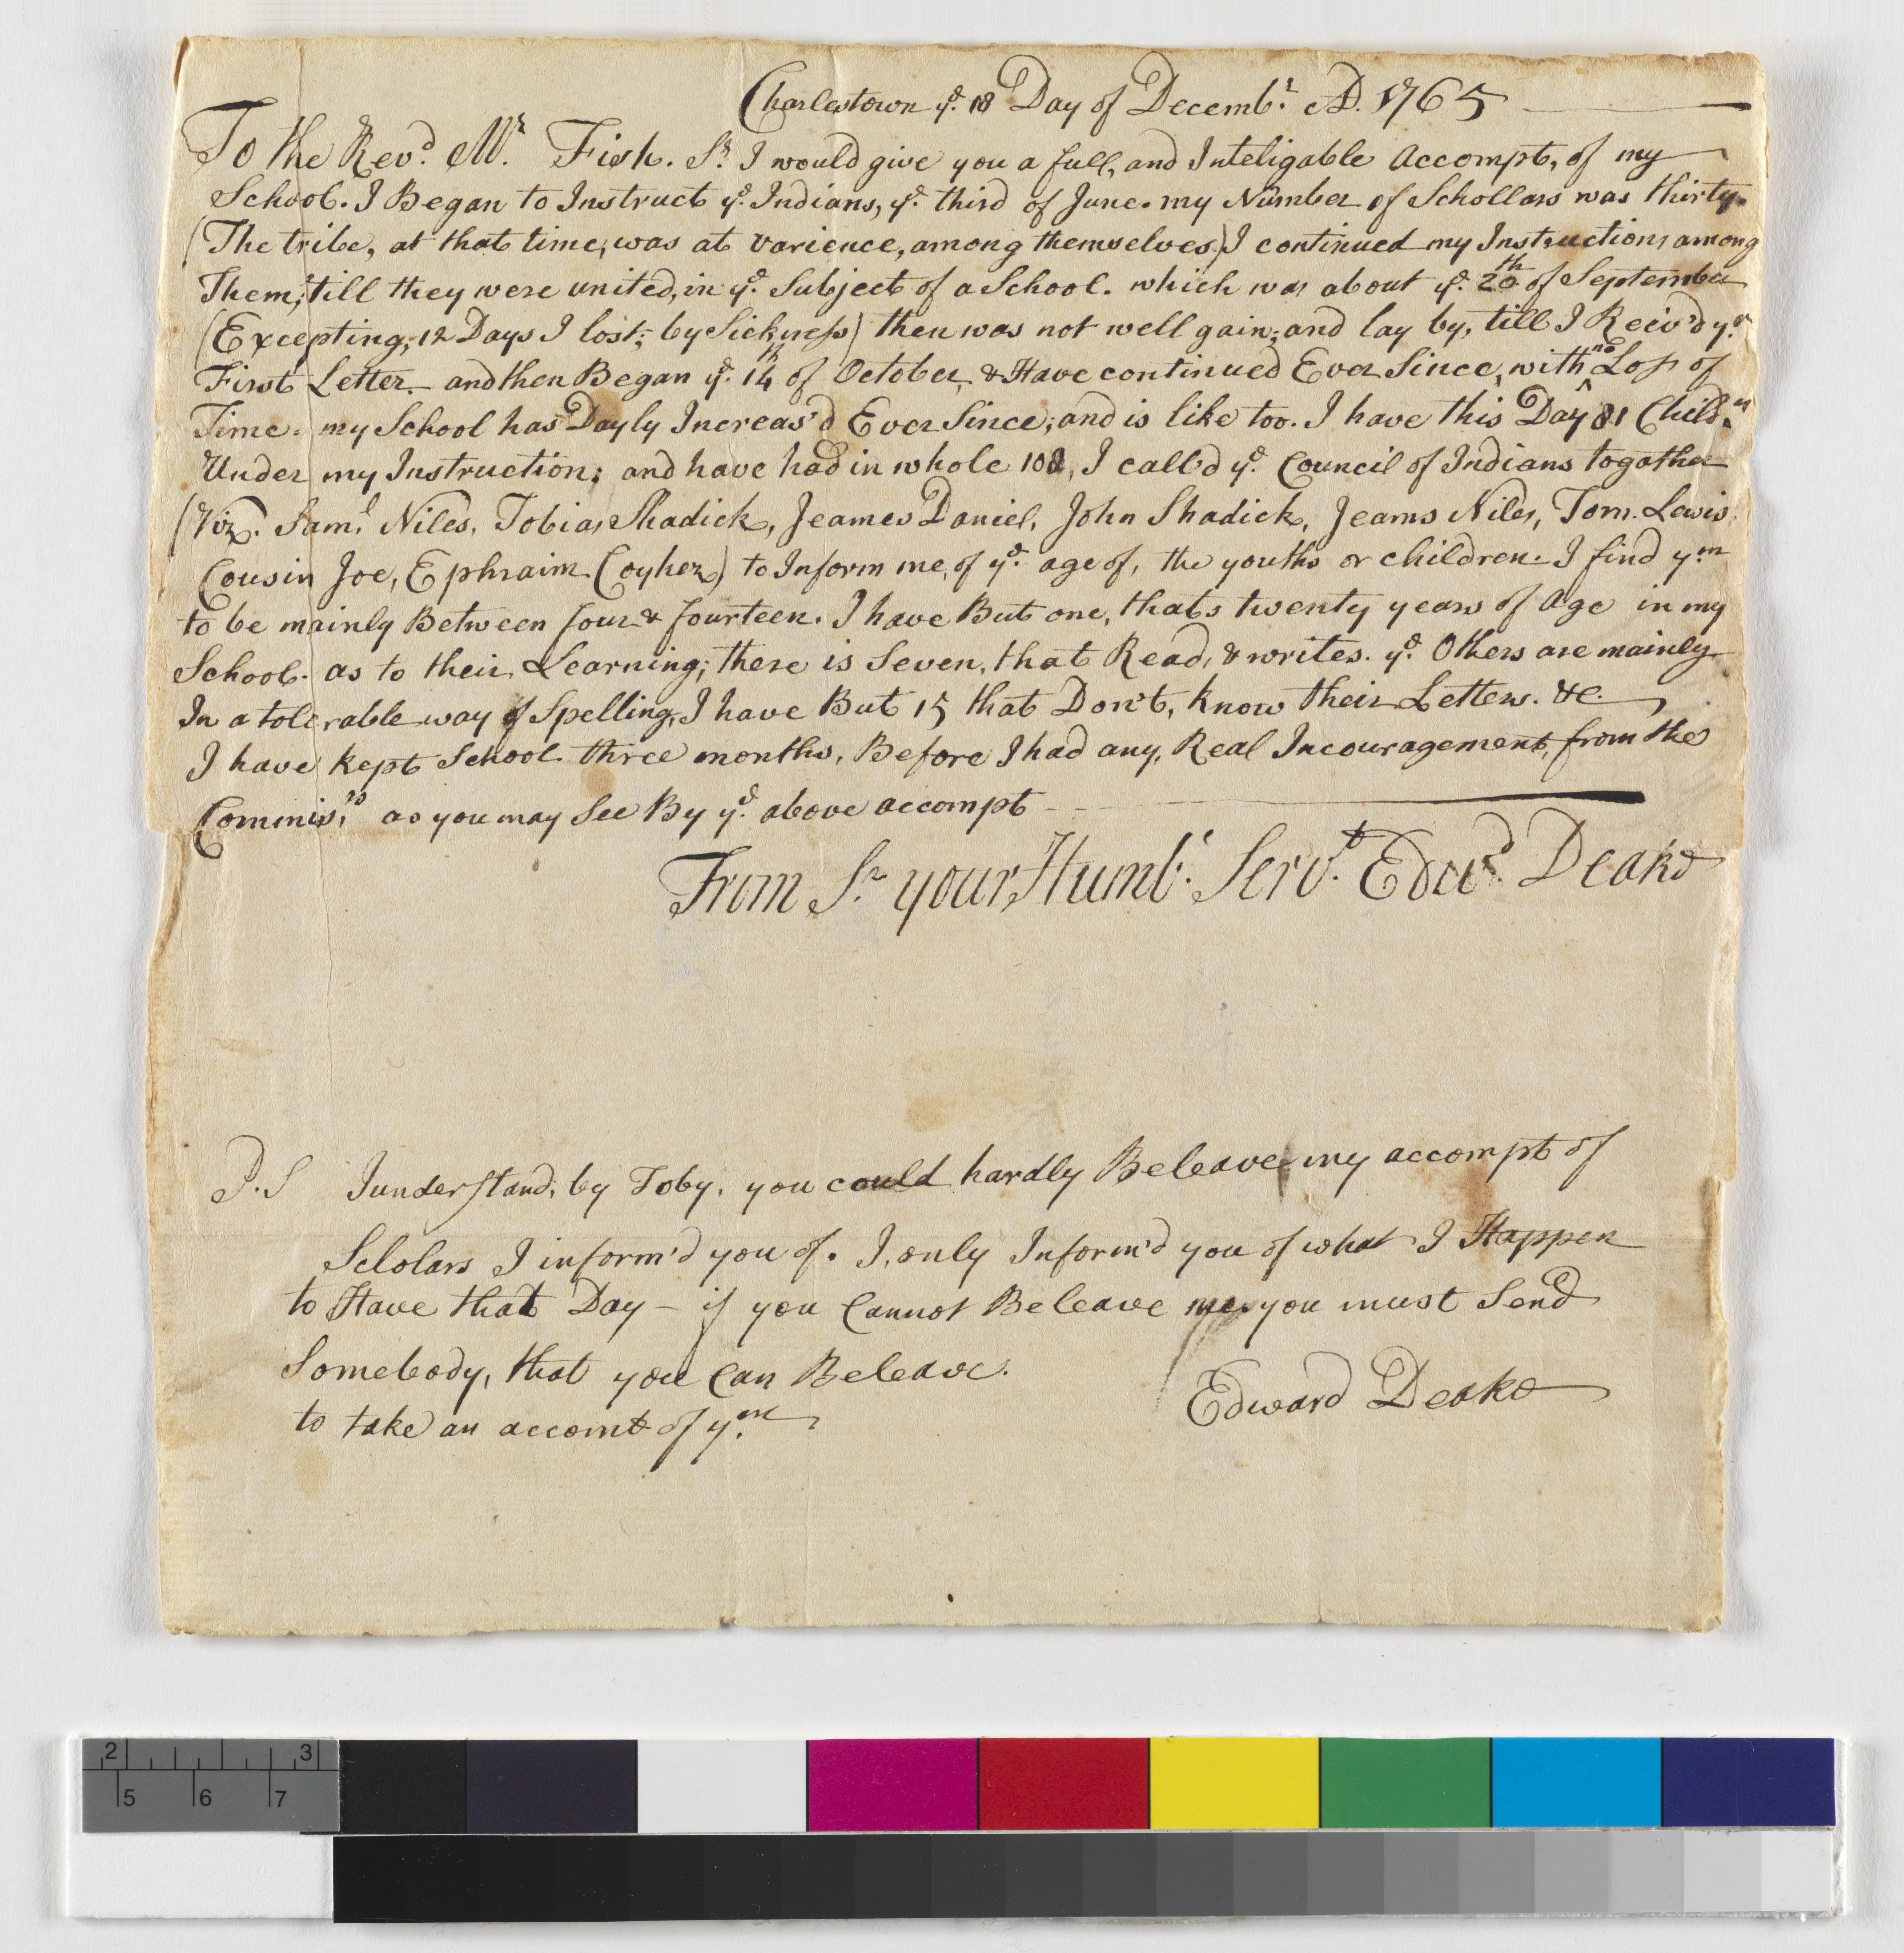 Charlestown yᵉ. 18 Day of Decembʳ. AD. 1765
To the Revᵈ. Mʳ. Fish. Sʳ. I would give you a full, and Inteligable Accompt, of my
School. I Began to Instruct yᵉ. Indians, yᵉ. third of June. my Number of Schollars was thirty.
(The tribe, at that time, was at varience, among themselves) I continued my Instructions among
Them, till they were united, in yᵉ. Subject of a School. which was about yᵉ. 20th of September
(Excepting, 12 Days I lost; by Sickness) then was not well gain; and lay by, till I Reciv'd yʳ
First Letter. and then Began yᵉ. 14th of October, & Have continued Ever Since, with no Loss of
Time. my School has Dayly Increas'd Ever Since; and is like too. I have this Day 81 Childʳⁿ
Under my Instruction; and have had in whole 108, I call'd yᵉ. Council of Indians togather
(Viz. Samˡ. Niles, Tobias Shadick, Jeames Daniel, John Shadick, Jeams Niles, Tom. Lewis,
Cousin Joe, Ephraim Coyhez) to Inform me, of yᵉ. age of, the youths or children. I find yᵐ
to be mainly Between four & fourteen. I have But one, thats twenty years of Age in my
School. as to their Learning; there is Seven, that Read, & writes. yᵉ. Others are mainly
In a tolerable way of Spelling, I have But 15 that Don't, know their Letters. &c.
I have kept School three months, Before I had any, Real Incouragement, from the
Commisʳˢ. as you may See By yᵉ. above accompt
From Sʳ. your Humbˡ. Servᵗ. Edwᵈ. Deake
P.S I understand, by Toby, you could hardly Beleave my accompt of
Sclolars I inform'd you of. I, only Inform'd you of what I Happen
to Have that Day – if you Cannot Beleave me, you must Send
Somebody, that you Can Beleave.
to take an accomt of yᵐ.
Edward Deake
2 3
5 6 7